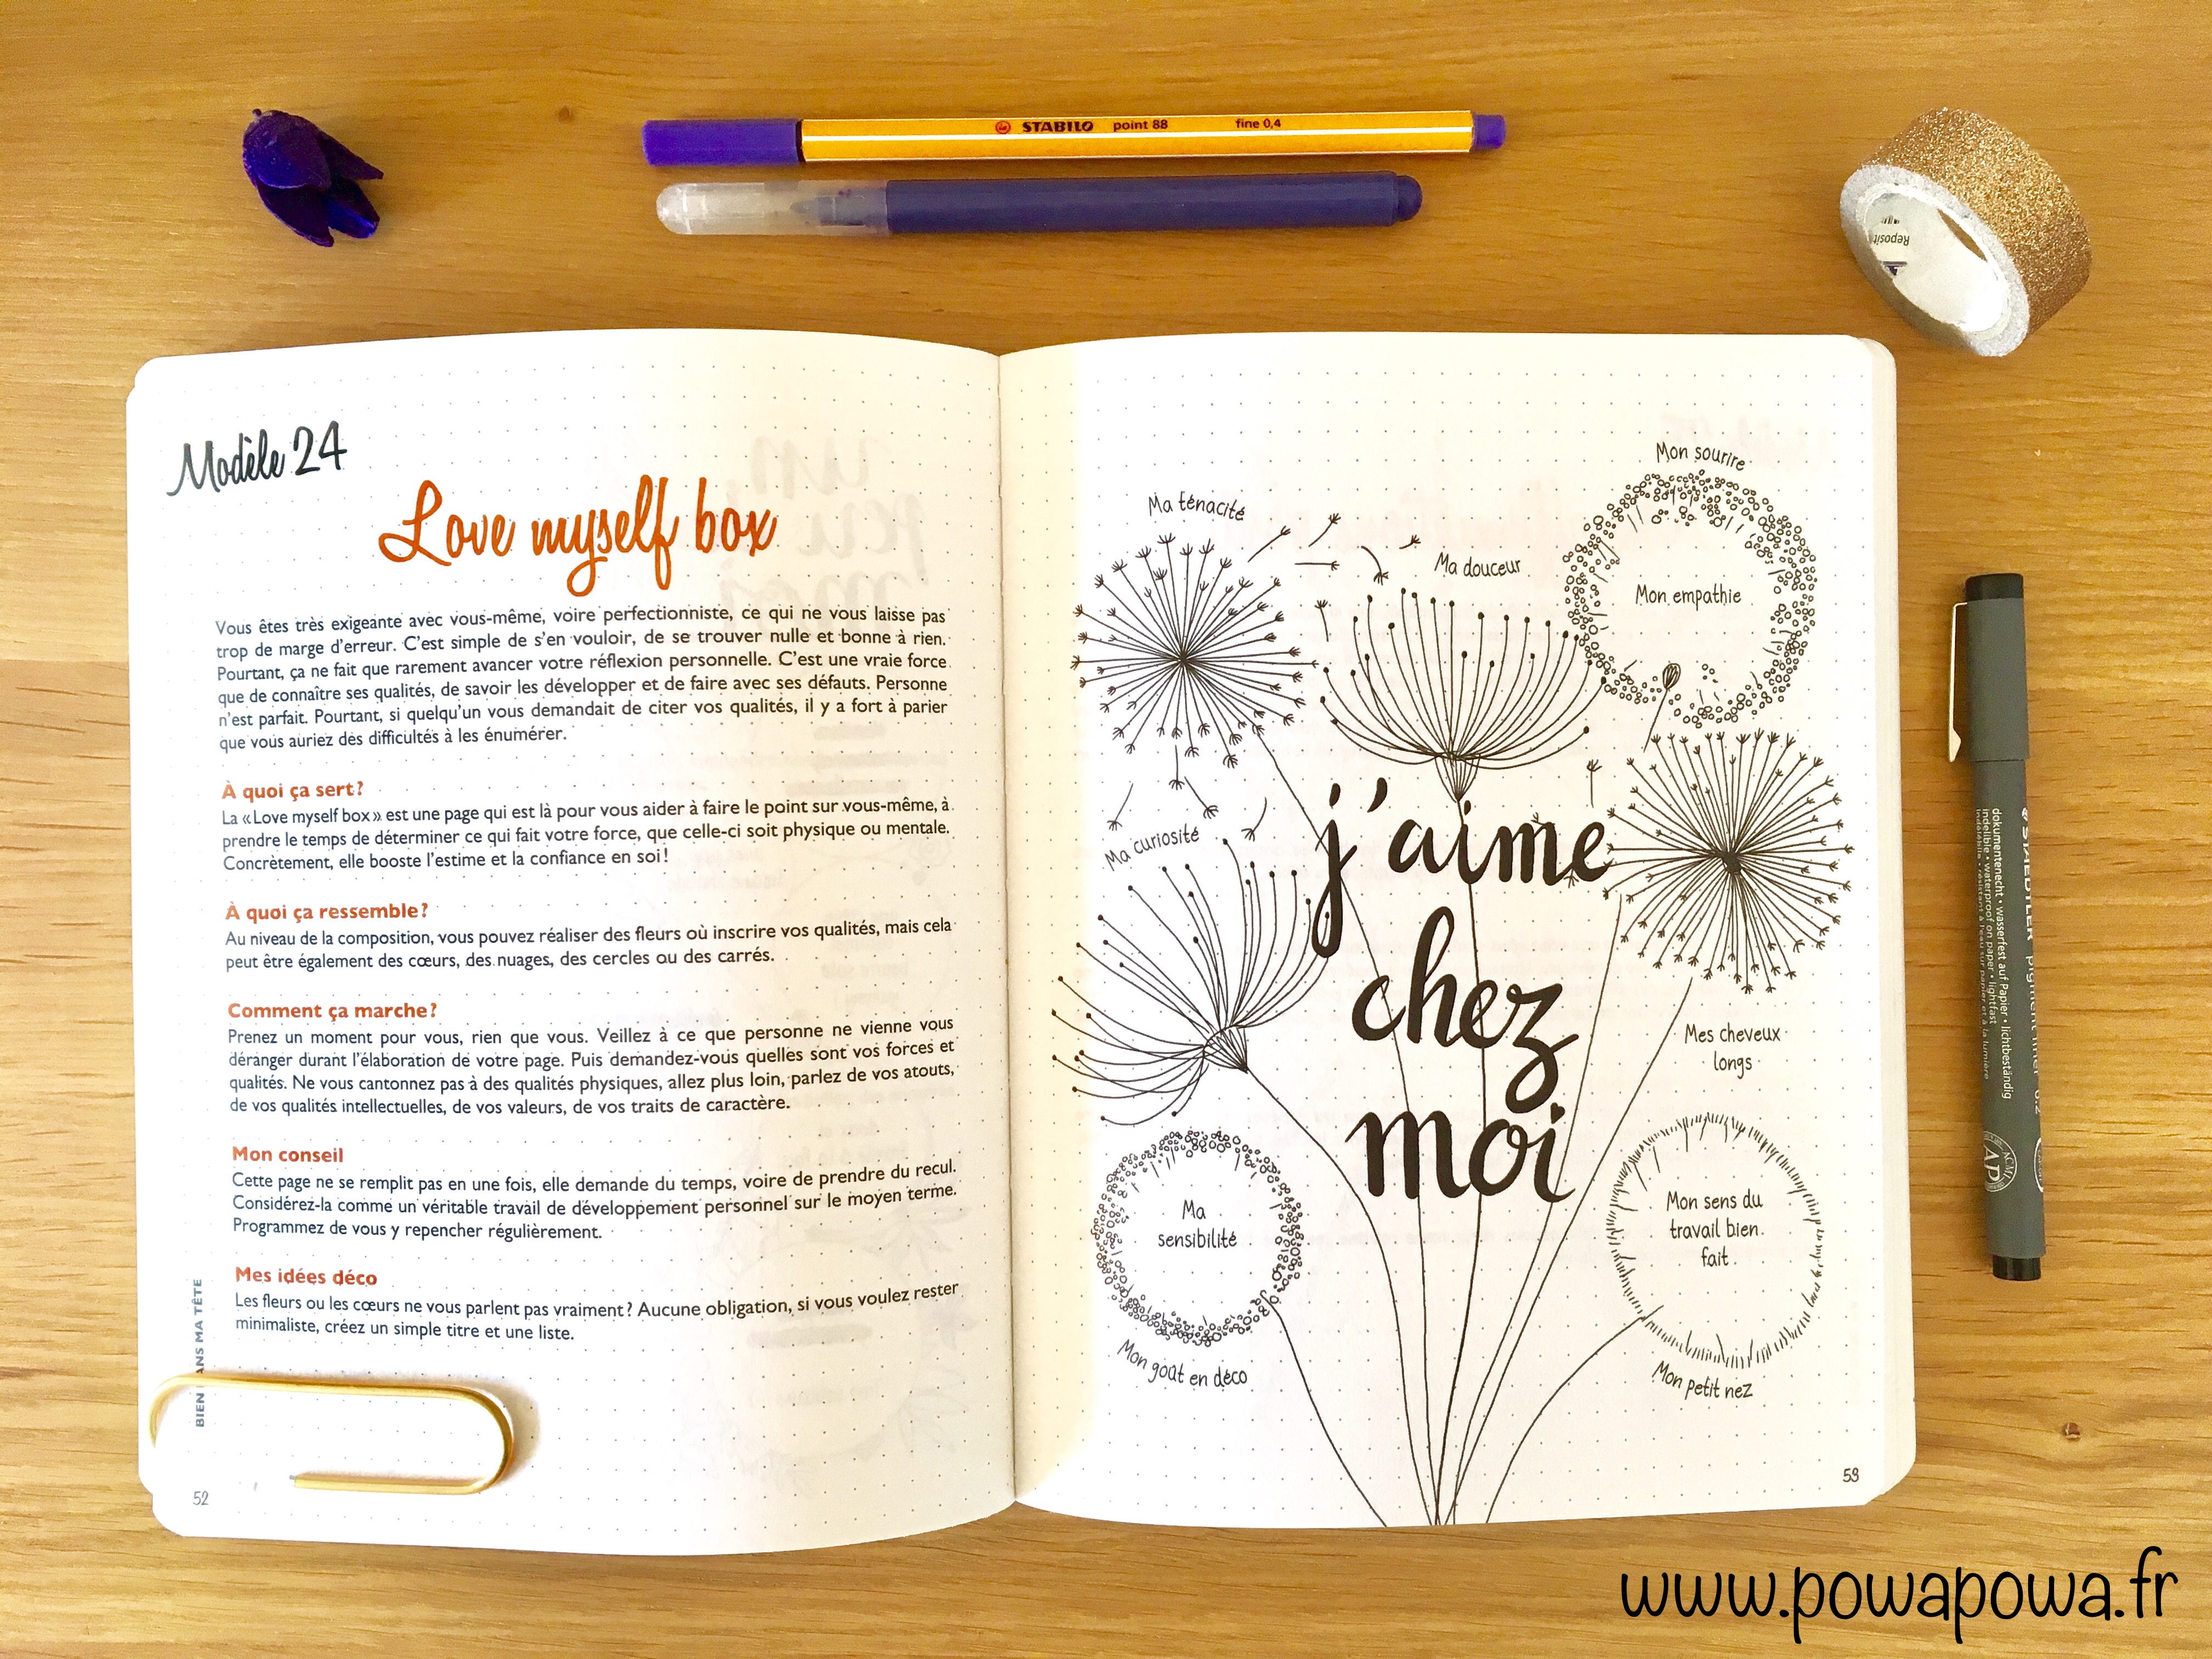 STABILO point 88 fine 0,4
Reposit
Modèle 24
Love myself box
Vous êtes très exigeante avec vous-même, voire perfectionniste, ce qui ne vous laisse pas
trop de marge d'erreur. C'est simple de s'en vouloir, de se trouver nulle et bonne à rien.
Pourtant, ça ne fait que rarement avancer votre réflexion personnelle. C'est une vraie force
que de connaître ses qualités, de savoir les développer et de faire avec ses défauts. Personne
n'est parfait. Pourtant, si quelqu'un vous demandait de citer vos qualités, il y a fort à parier
que vous auriez des difficultés à les énumérer.
À quoi ça sert ?
La « Love myself box » est une page qui est là pour vous aider à faire le point sur vous-même, à
prendre le temps de déterminer ce qui fait votre force, que celle-ci soit physique ou mentale.
Concrètement, elle booste l'estime et la confiance en soi !
À quoi ça ressemble ?
Au niveau de la composition, vous pouvez réaliser des fleurs où inscrire vos qualités, mais cela
peut être également des cœurs, des nuages, des cercles ou des carrés.
Comment ça marche ?
Prenez un moment pour vous, rien que vous. Veillez à ce que personne ne vienne vous
déranger durant l'élaboration de votre page. Puis demandez-vous quelles sont vos forces et
qualités. Ne vous cantonnez pas à des qualités physiques, allez plus loin, parlez de vos atouts,
de vos qualités intellectuelles, de vos valeurs, de vos traits de caractère.
Mon conseil
Cette page ne se remplit pas en une fois, elle demande du temps, voire de prendre du recul.
Considérez-la comme un véritable travail de développement personnel sur le moyen terme.
Programmez de vous y repencher régulièrement.
Mes idées déco
Les fleurs ou les cœurs ne vous parlent pas vraiment ? Aucune obligation, si vous voulez rester
minimaliste, créez un simple titre et une liste.
BIEN ANS MA TÊTE
52
Mon sourire
Ma ténacité
Ma douceur
Mon empathie
j'aime
Ma curiosité
chez
Mes cheveux
longs
moi
Ma
sensibilité
Mon sens du
travail bien
fait
Mon goût en déco
Mon petit nez
53
STAEDTLER pigment liner 0.2
dokumentenecht • wasserfest auf Papier • lichtbeständig
indelible • waterproof on paper • lightfast
www.powapowa.fr